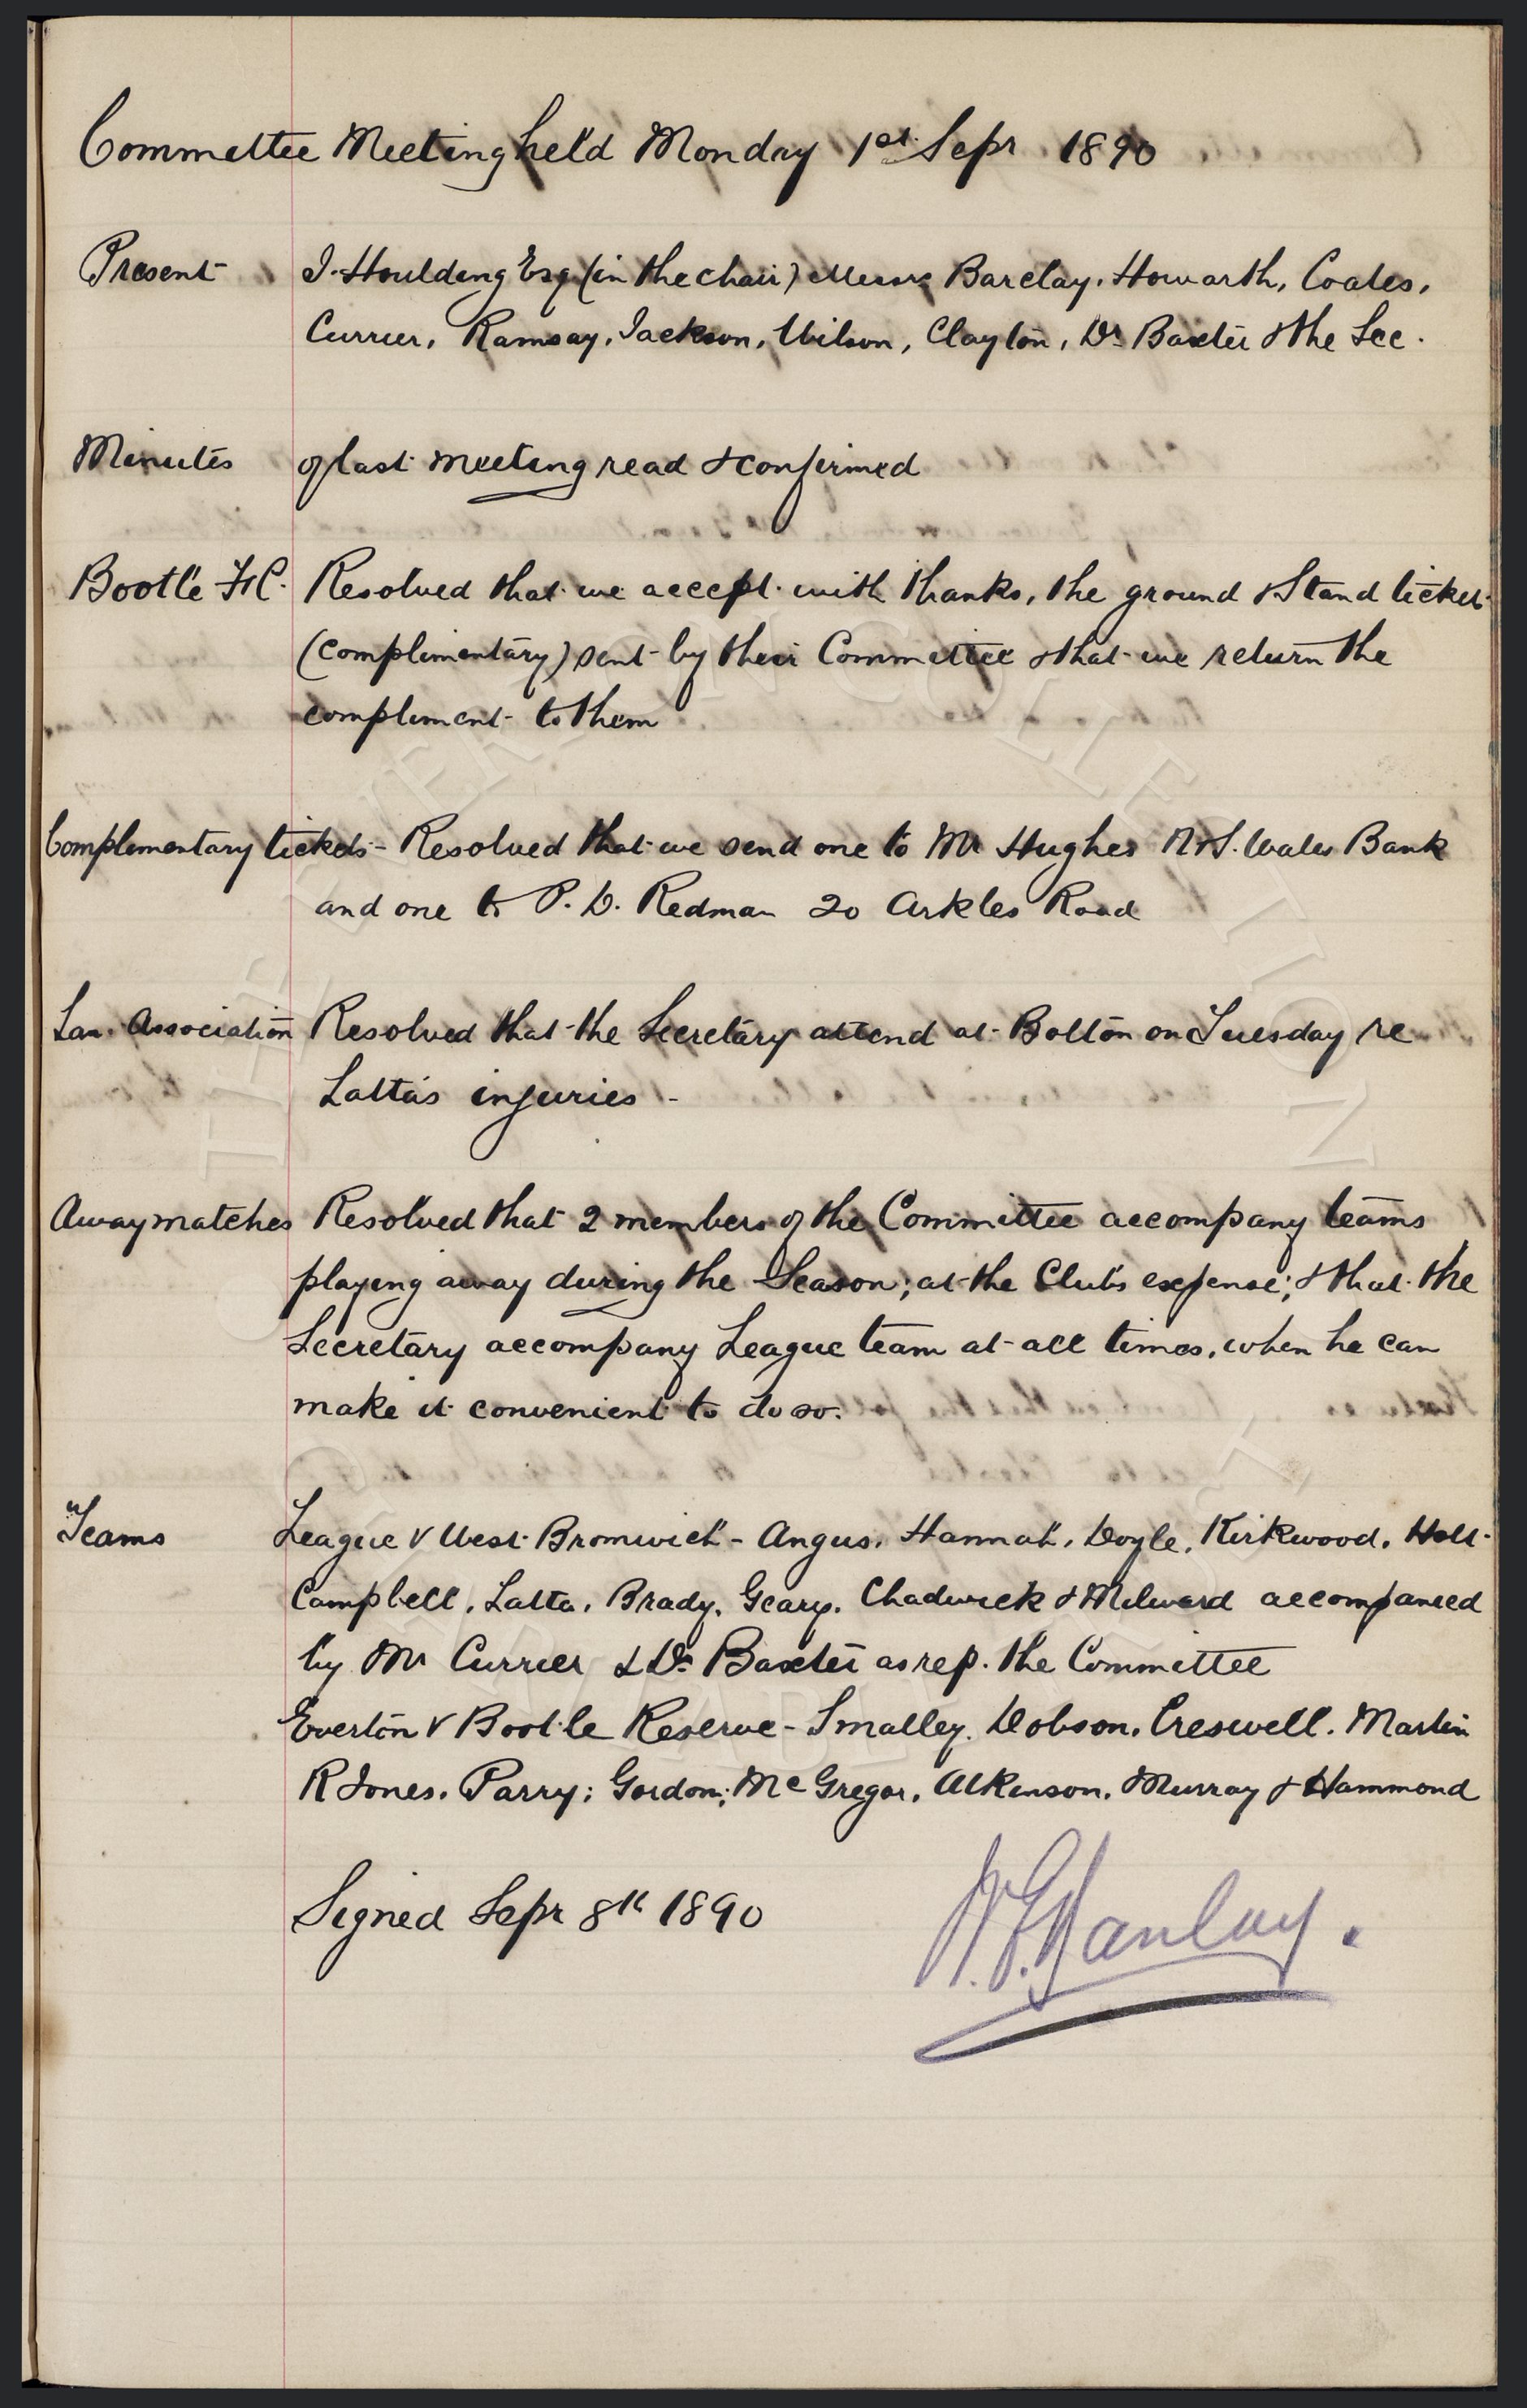 Committee Meeting held Monday 1st Sepr 1890
Present J. Houlding Esq (in the chair) Messrs Barclay, Howarth, Coates,
Currier, Ramsay, Jackson, Wilson, Clayton, Dr Baxter & the Sec.
Minutes of last meeting read & confirmed
Bootle F.C. Resolved that we accept with thanks, the ground & Stand tickets
(complimentary) sent by their Committee & that we return the
compliment to them
Complimentary tickets - Resolved that we send one to Mr Hughes N & S. Wales Bank
and one to P. D. Redman 20 Arkles Road
Lan. Association Resolved that the Secretary attend at Bolton on Tuesday re
Latta's injuries -
Away matches Resolved that 2 members of the Committee accompany teams
playing away during the Season; at the Club's expense; & that the
Secretary accompany League team at all times, when he can
make it convenient to do so.
Teams League v West Bromwich - Angus, Hannah, Doyle, Kirkwood, Holt
Campbell, Latta, Brady, Geary, Chadwick & Milward accompanied
by Mr Currier & Dr Baxter as rep. the Committee
Everton v Bootle Reserve - Smalley, Dobson, Creswell, Martin
R Jones, Parry; Gordon; McGregor, Atkinson, Murray & Hammond
Signed Sepr 8th 1890